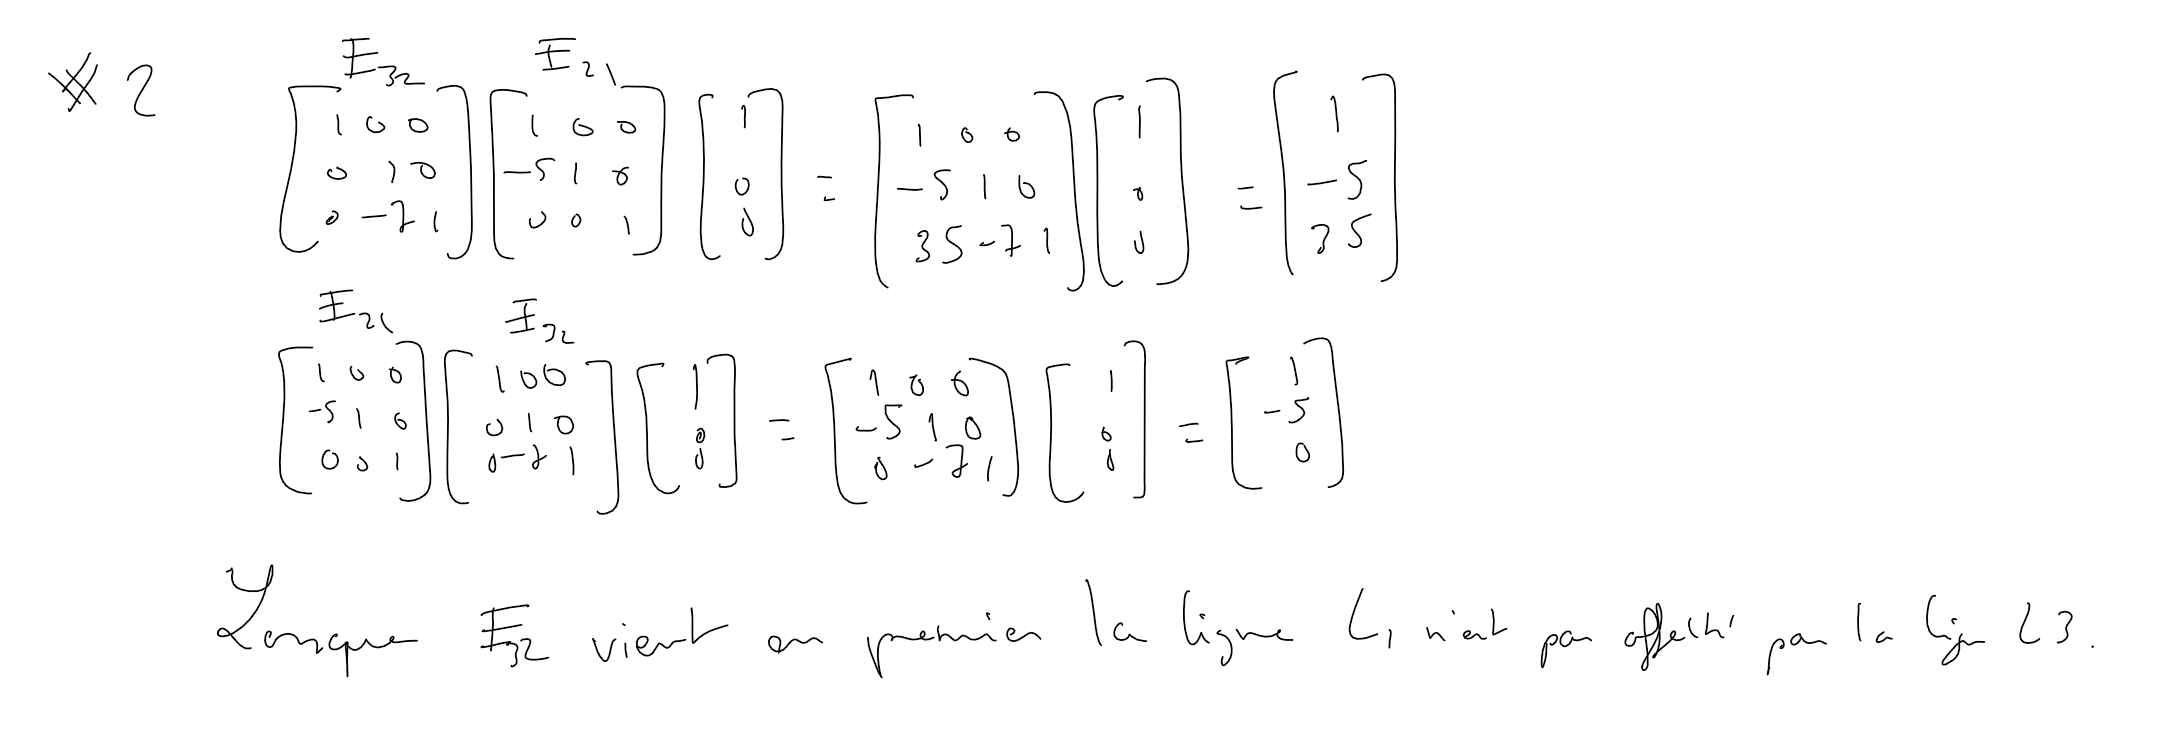 # 2
E32 E21
[1 0 0; 0 1 0; 0 -7 1] [1 0 0; -5 1 0; 0 0 1] [1; 0; 0] = [1 0 0; -5 1 0; 35 -7 1] [1; 0; 0] = [1; -5; 35]
E21 E32
[1 0 0; -5 1 0; 0 0 1] [1 0 0; 0 1 0; 0 -7 1] [1; 0; 0] = [1 0 0; -5 1 0; 0 -7 1] [1; 0; 0] = [1; -5; 0]
Lorsque E32 vient en premier la ligne L1 n'est pas affecté par la ligne L3.